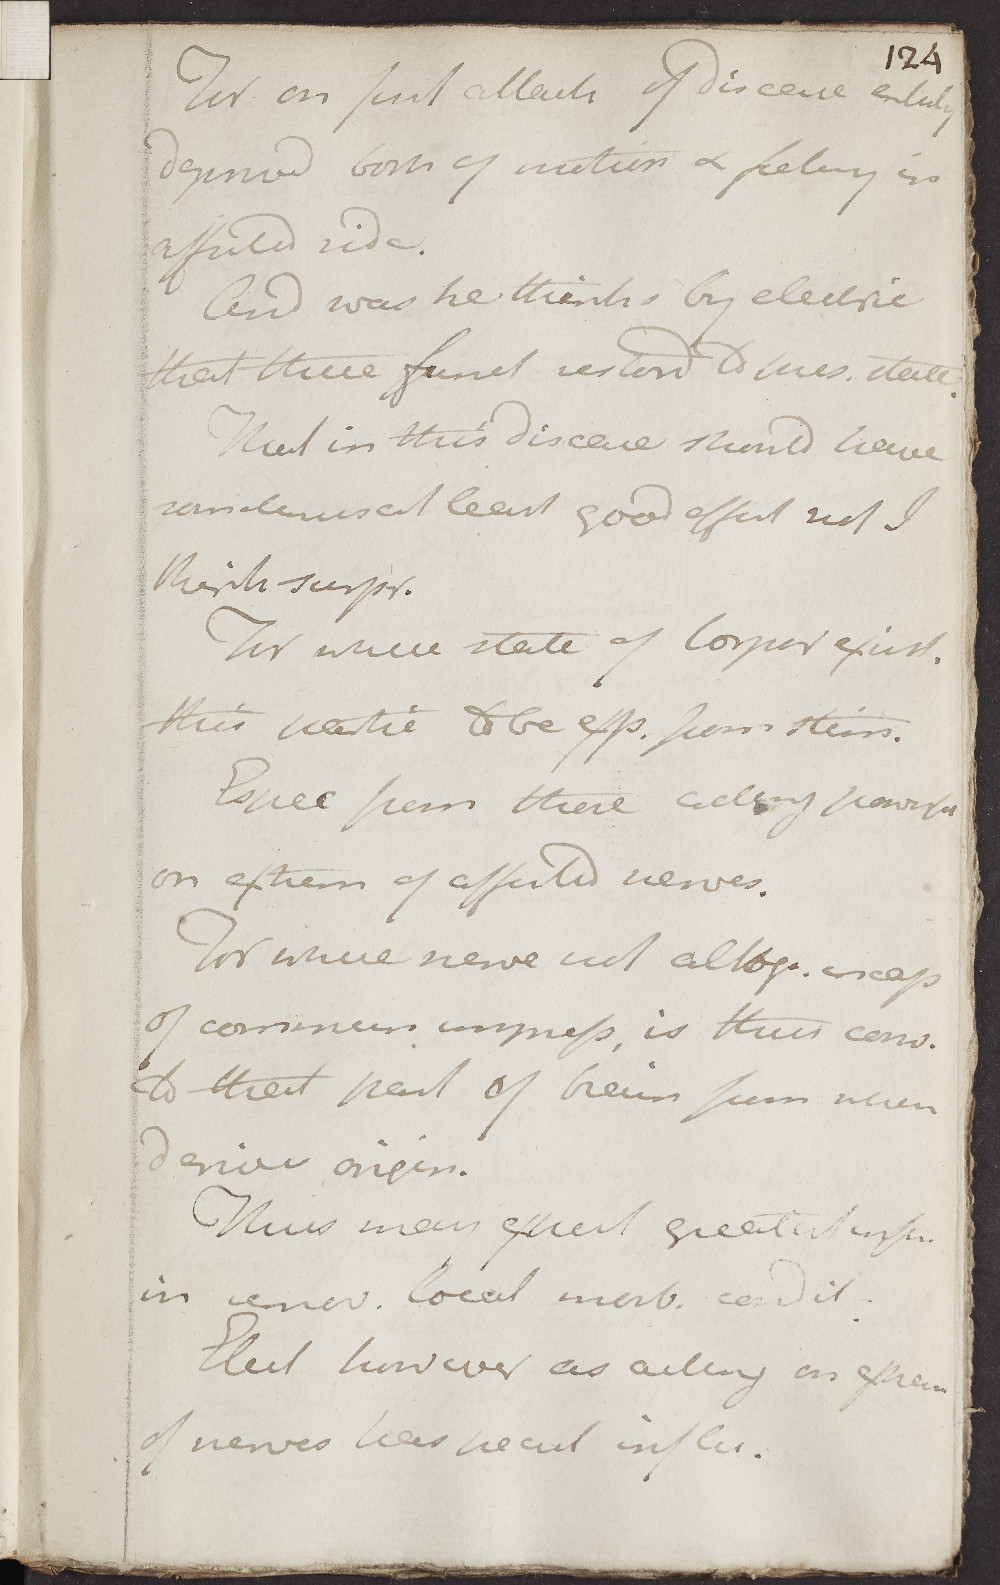 124
For on first attack of disease entirely
deprived both of motion & feeling in
affected side.
And was he thinks by electric
that these funct restord to pres. state.
That in this disease should have
somtimes at least good effect not I
think surpr.
For where state of torpor exist.
this partic to be exp. from stim.
Espec from those acting powerf
on extrem of affected nerves.
For where nerve not altog. incap
of commun impress, is thus conv.
to that part of brain from when
derives origin.
Thus may expect greatest infl.
in remov. local morb. condit.
Elect however as acting on extrem
of nerves has pecul influ.